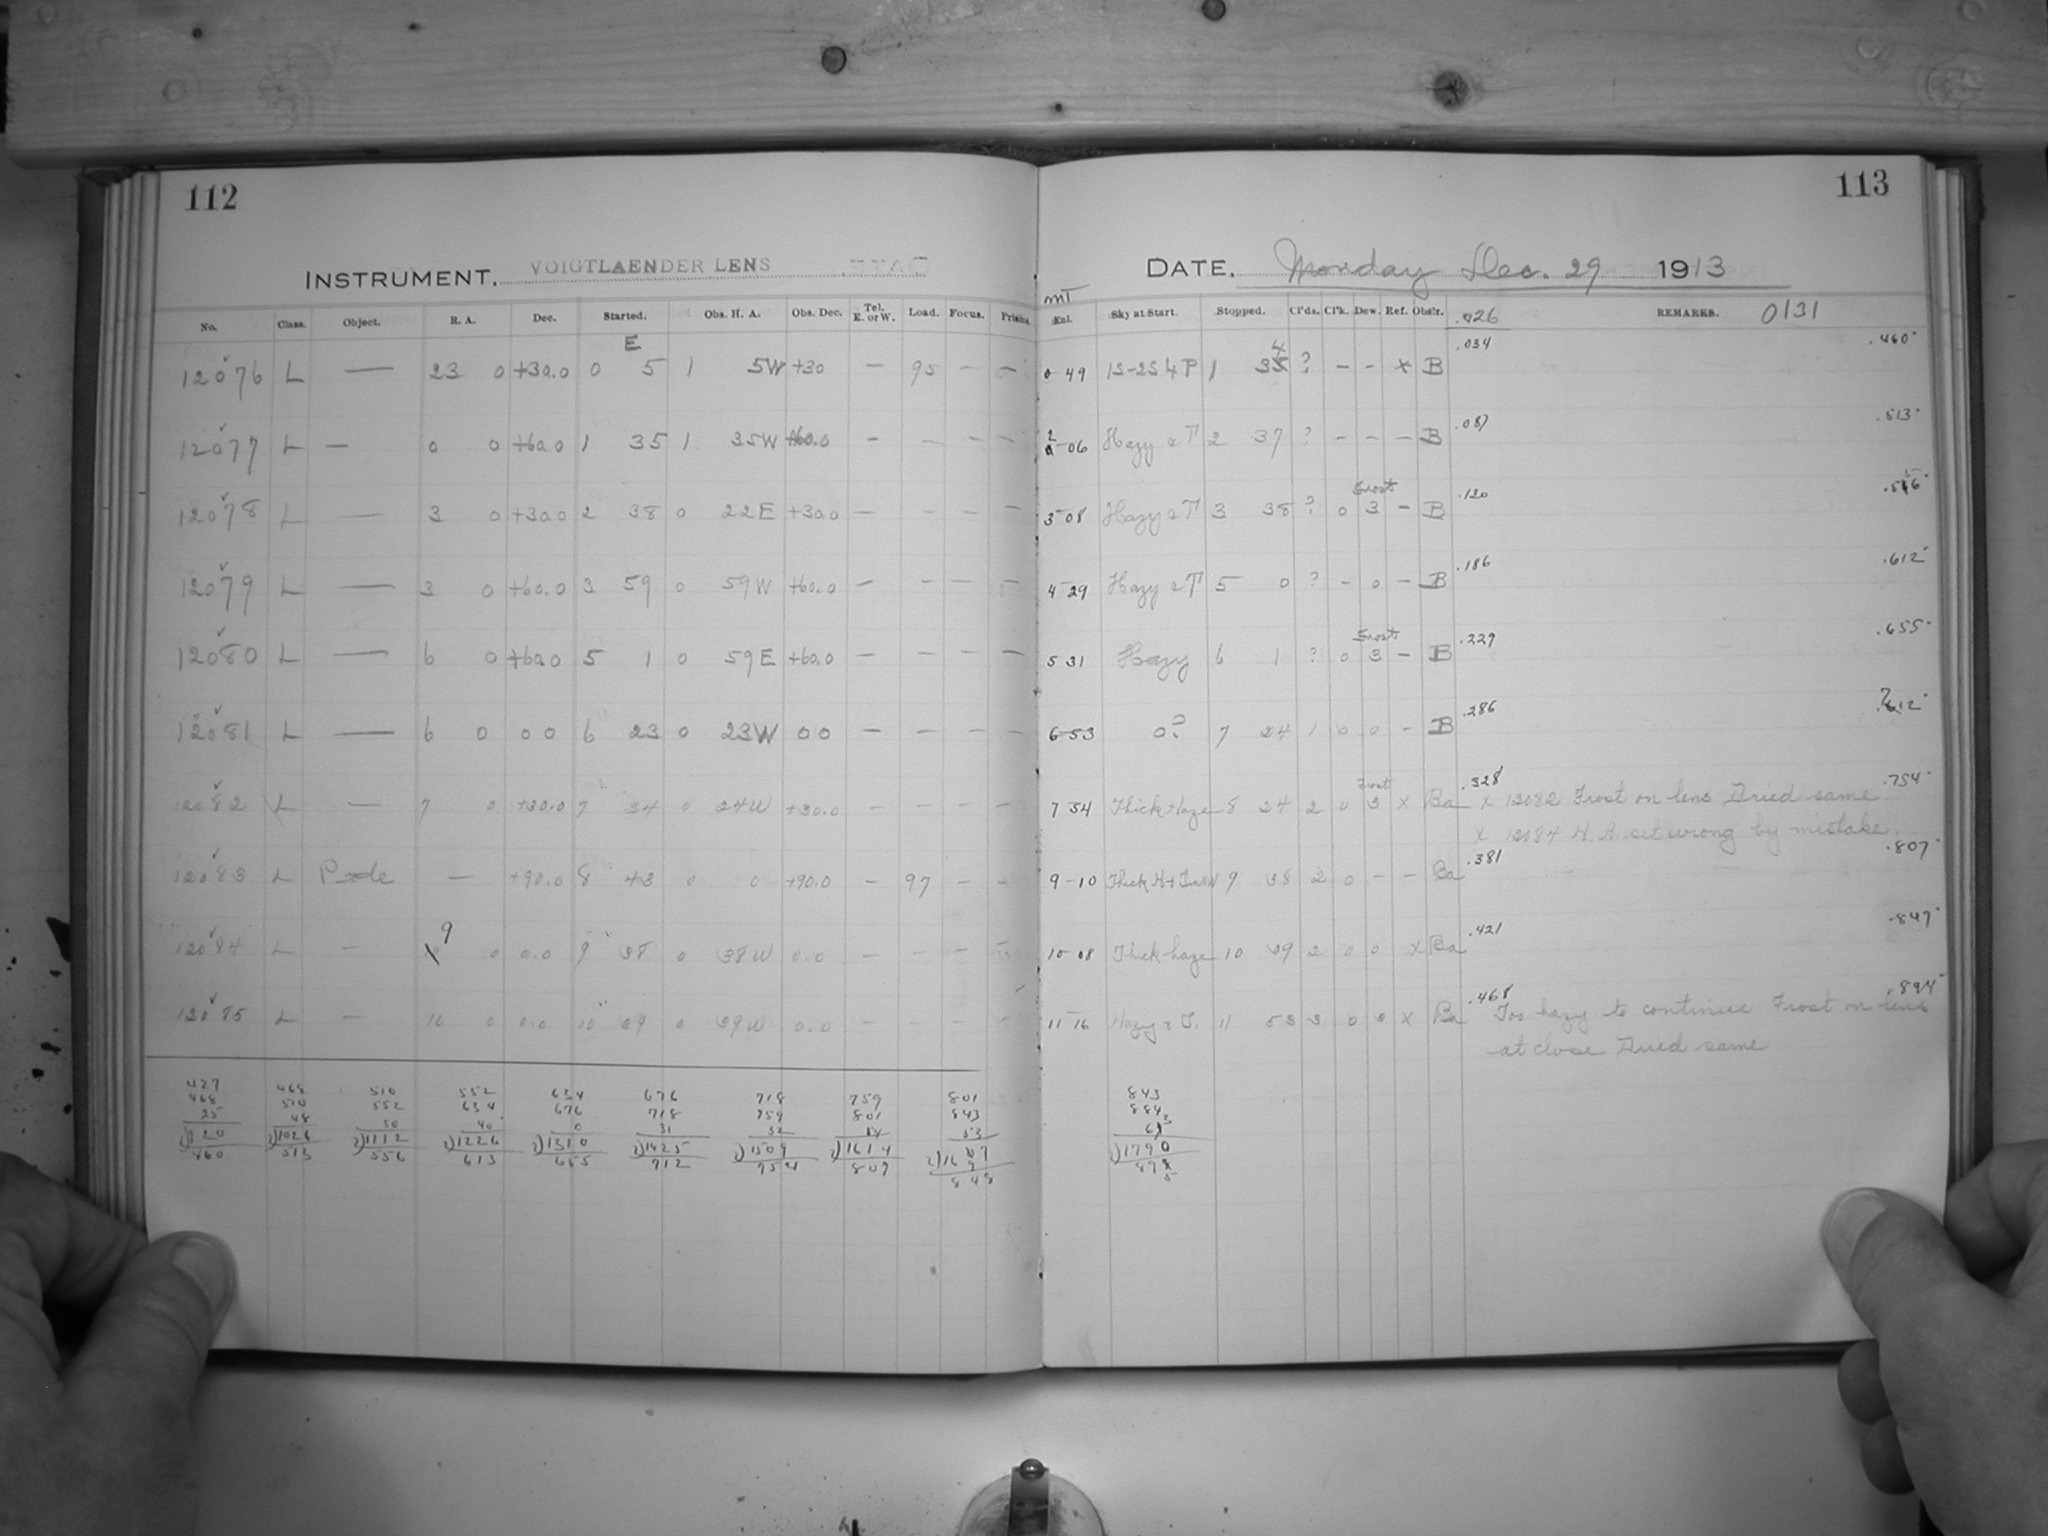 112
INSTRUMENT. VOIGTLAENDER LENS
No. Class. Object. R. A. Dec. Started. Obs. H. A. Obs. Dec. Tel. E. or W. Load. Focus. Prisms.
E
12076 L — 23 0 +30.0 0 5 1 5W +30 — 95 — —
12077 L — 0 0 +60.0 1 35 1 35W +60.0 — — — —
12078 L — 3 0 +30.0 2 38 0 22E +30.0 — — — —
12079 L — 3 0 +60.0 3 59 0 59W +60.0 — — — —
12080 L — 6 0 +60.0 5 1 0 59E +60.0 — — — —
12081 L — 6 0 0 0 6 23 0 23W 0 0 — — — —
12082 L — 7 0 +30.0 7 24 0 24W +30.0 — — — —
12083 L Pole — +90.0 8 43 0 0 +90.0 — 97 — —
12084 L — 9 0 0.0 9 38 0 38W 0.0 — — — —
12085 L — 10 0 0.0 10 39 0 39W 0.0 — — — —
427 468 510 552 634 676 718 759 801
468 510 552 634 676 718 759 801 843
25 48 50 40 0 31 32 54 53
2)920 2)1026 2)1112 2)1226 2)1310 2)1425 2)1509 2)1614
460 513 556 613 655 712 754 807 848
113
DATE. Monday Dec. 29 1913
MT
Enl. Sky at Start. Stopped. Cl'ds. Cl'k. Dew. Ref. Obstr. .026 REMARKS. 0131
.034 .460
0-49 1S-2S4P 1 34 ? — — x B
.087 .513
2-06 Hazy & T 2 37 ? — — — B
Frost .120 .556
3-08 Hazy & T 3 38 ? 0 3 — B
.186 .612
4-29 Hazy & T 5 0 ? — 0 — B
Frost .229 .655
5 31 Hazy 6 1 ? 0 3 — B
.286 .712
6-53 0? 7 24 1 0 0 — B
Frost .328 .754
7 54 Thick Haze 8 24 2 0 3 x Ba x 12082 Frost on lens Dried same.
x 12084 H. A. set wrong by mistake.
.381 .807
9-10 Thick H + 9 38 2 0 — — Ba
.421 .847
10-08 Thick haze 10 39 2 0 0 x Ba
.468 .894
11-16 Hazy & T. 11 53 3 0 3 x Ba Too hazy to continue Frost on lens
at close Dried same
843
884
2)1790
895